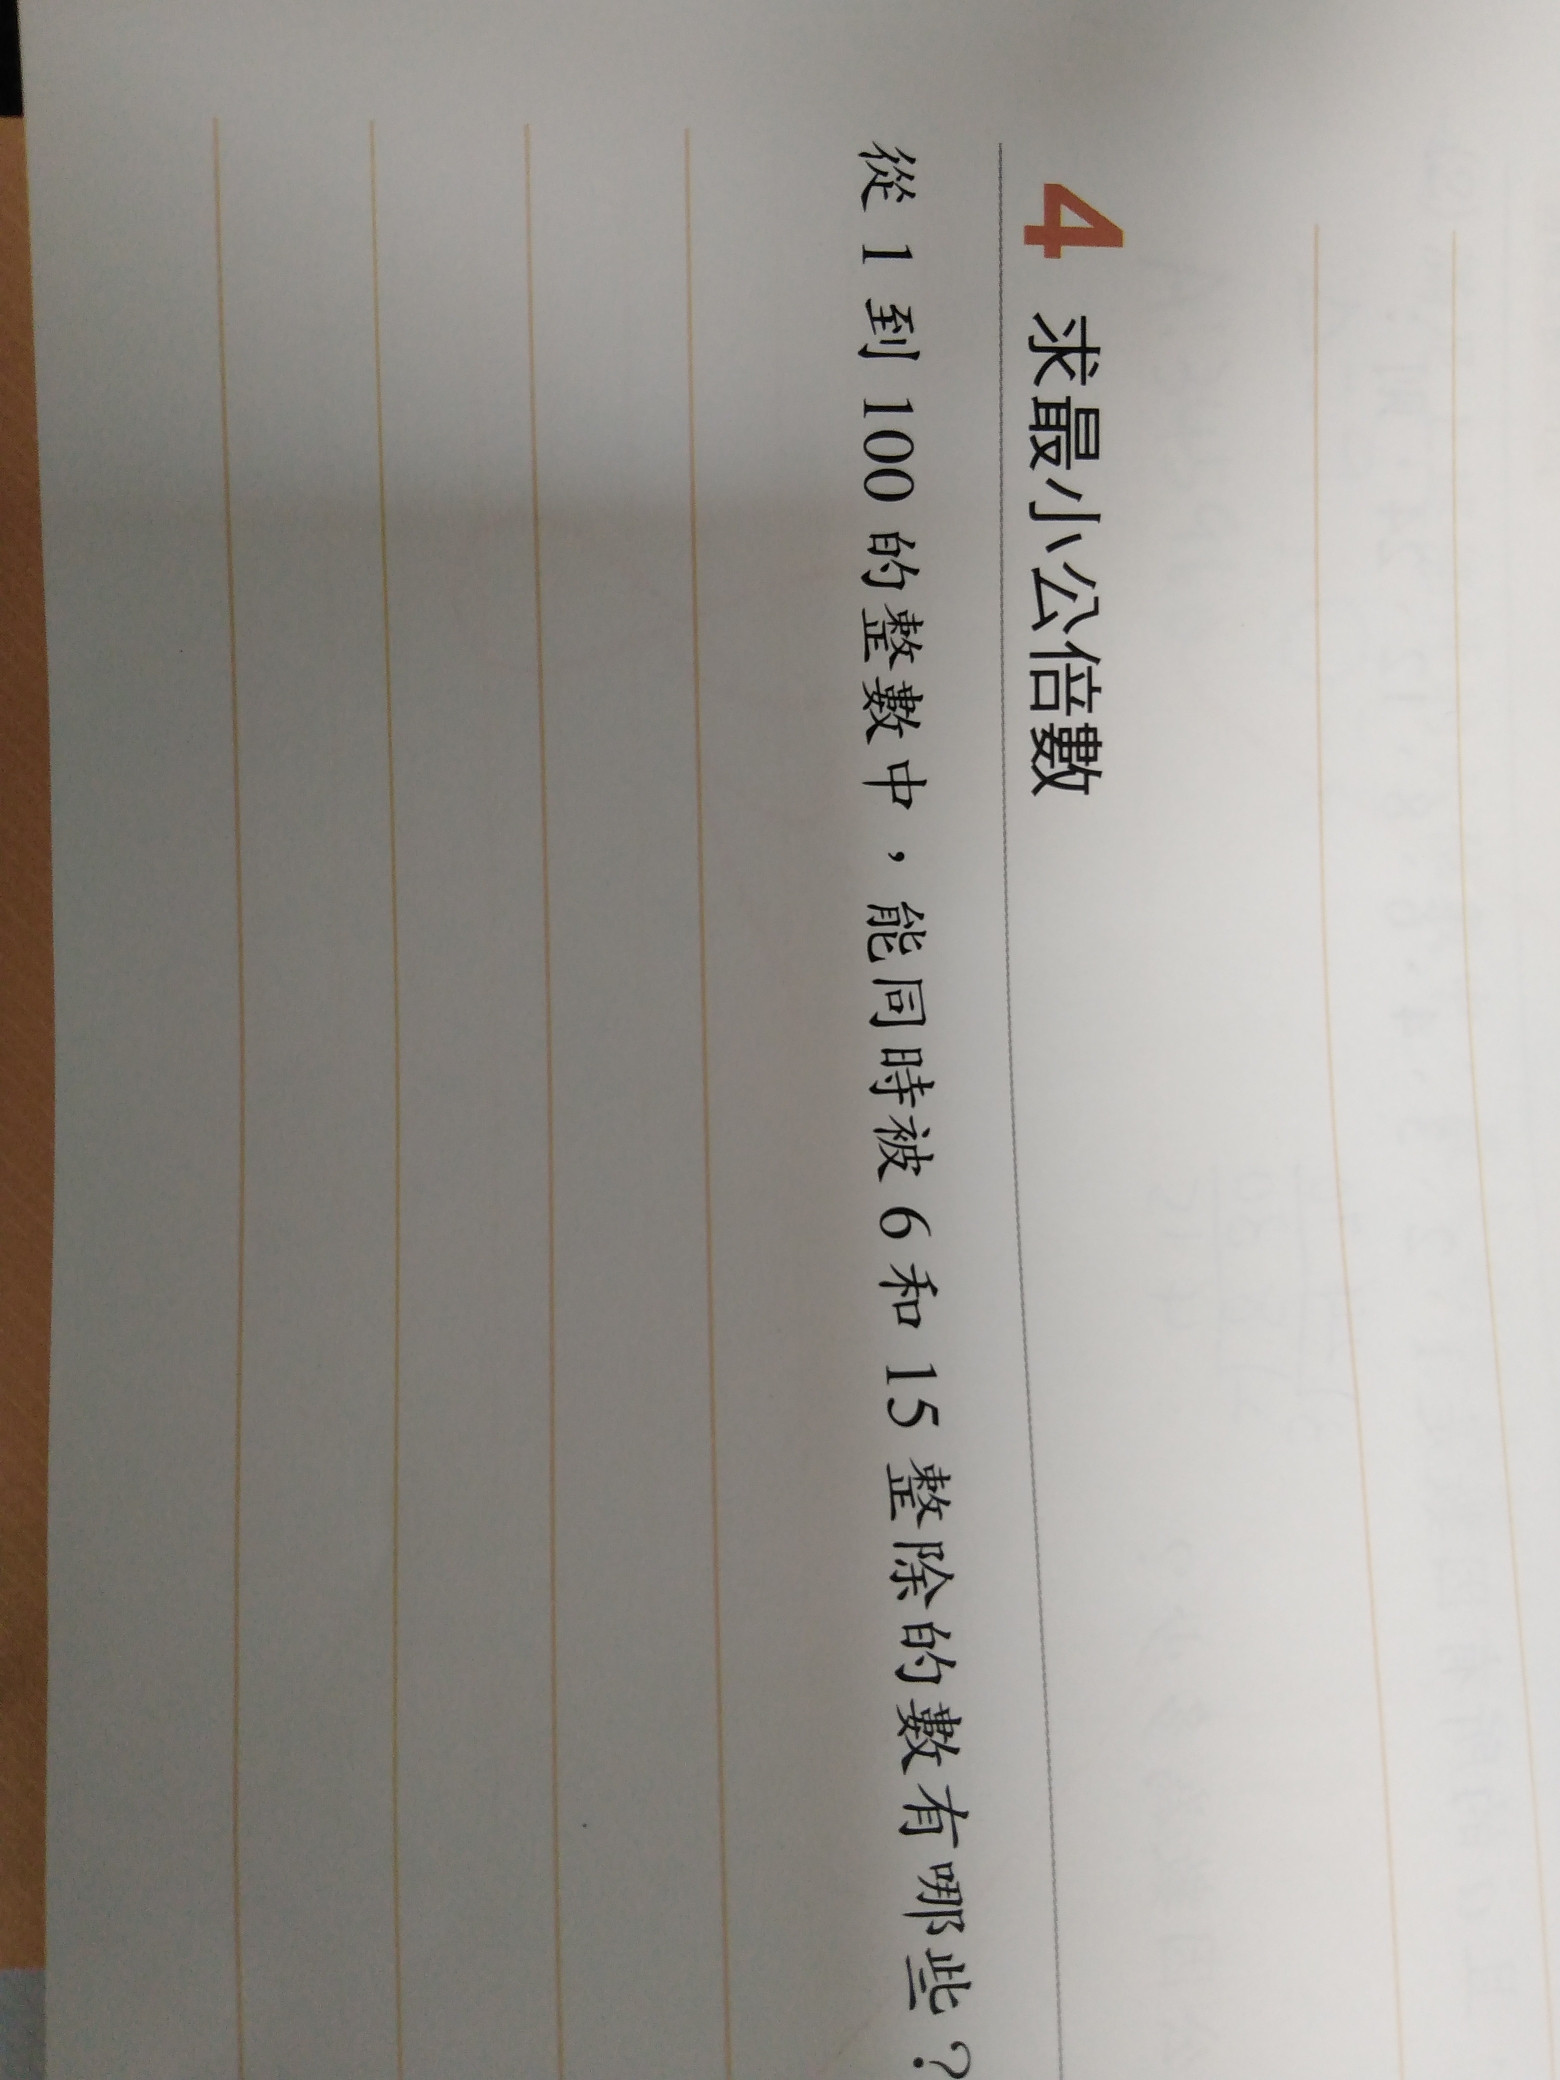 4 求最小公倍數
從 1 到 100 的整數中，能同時被 6 和 15 整除的數有哪些？